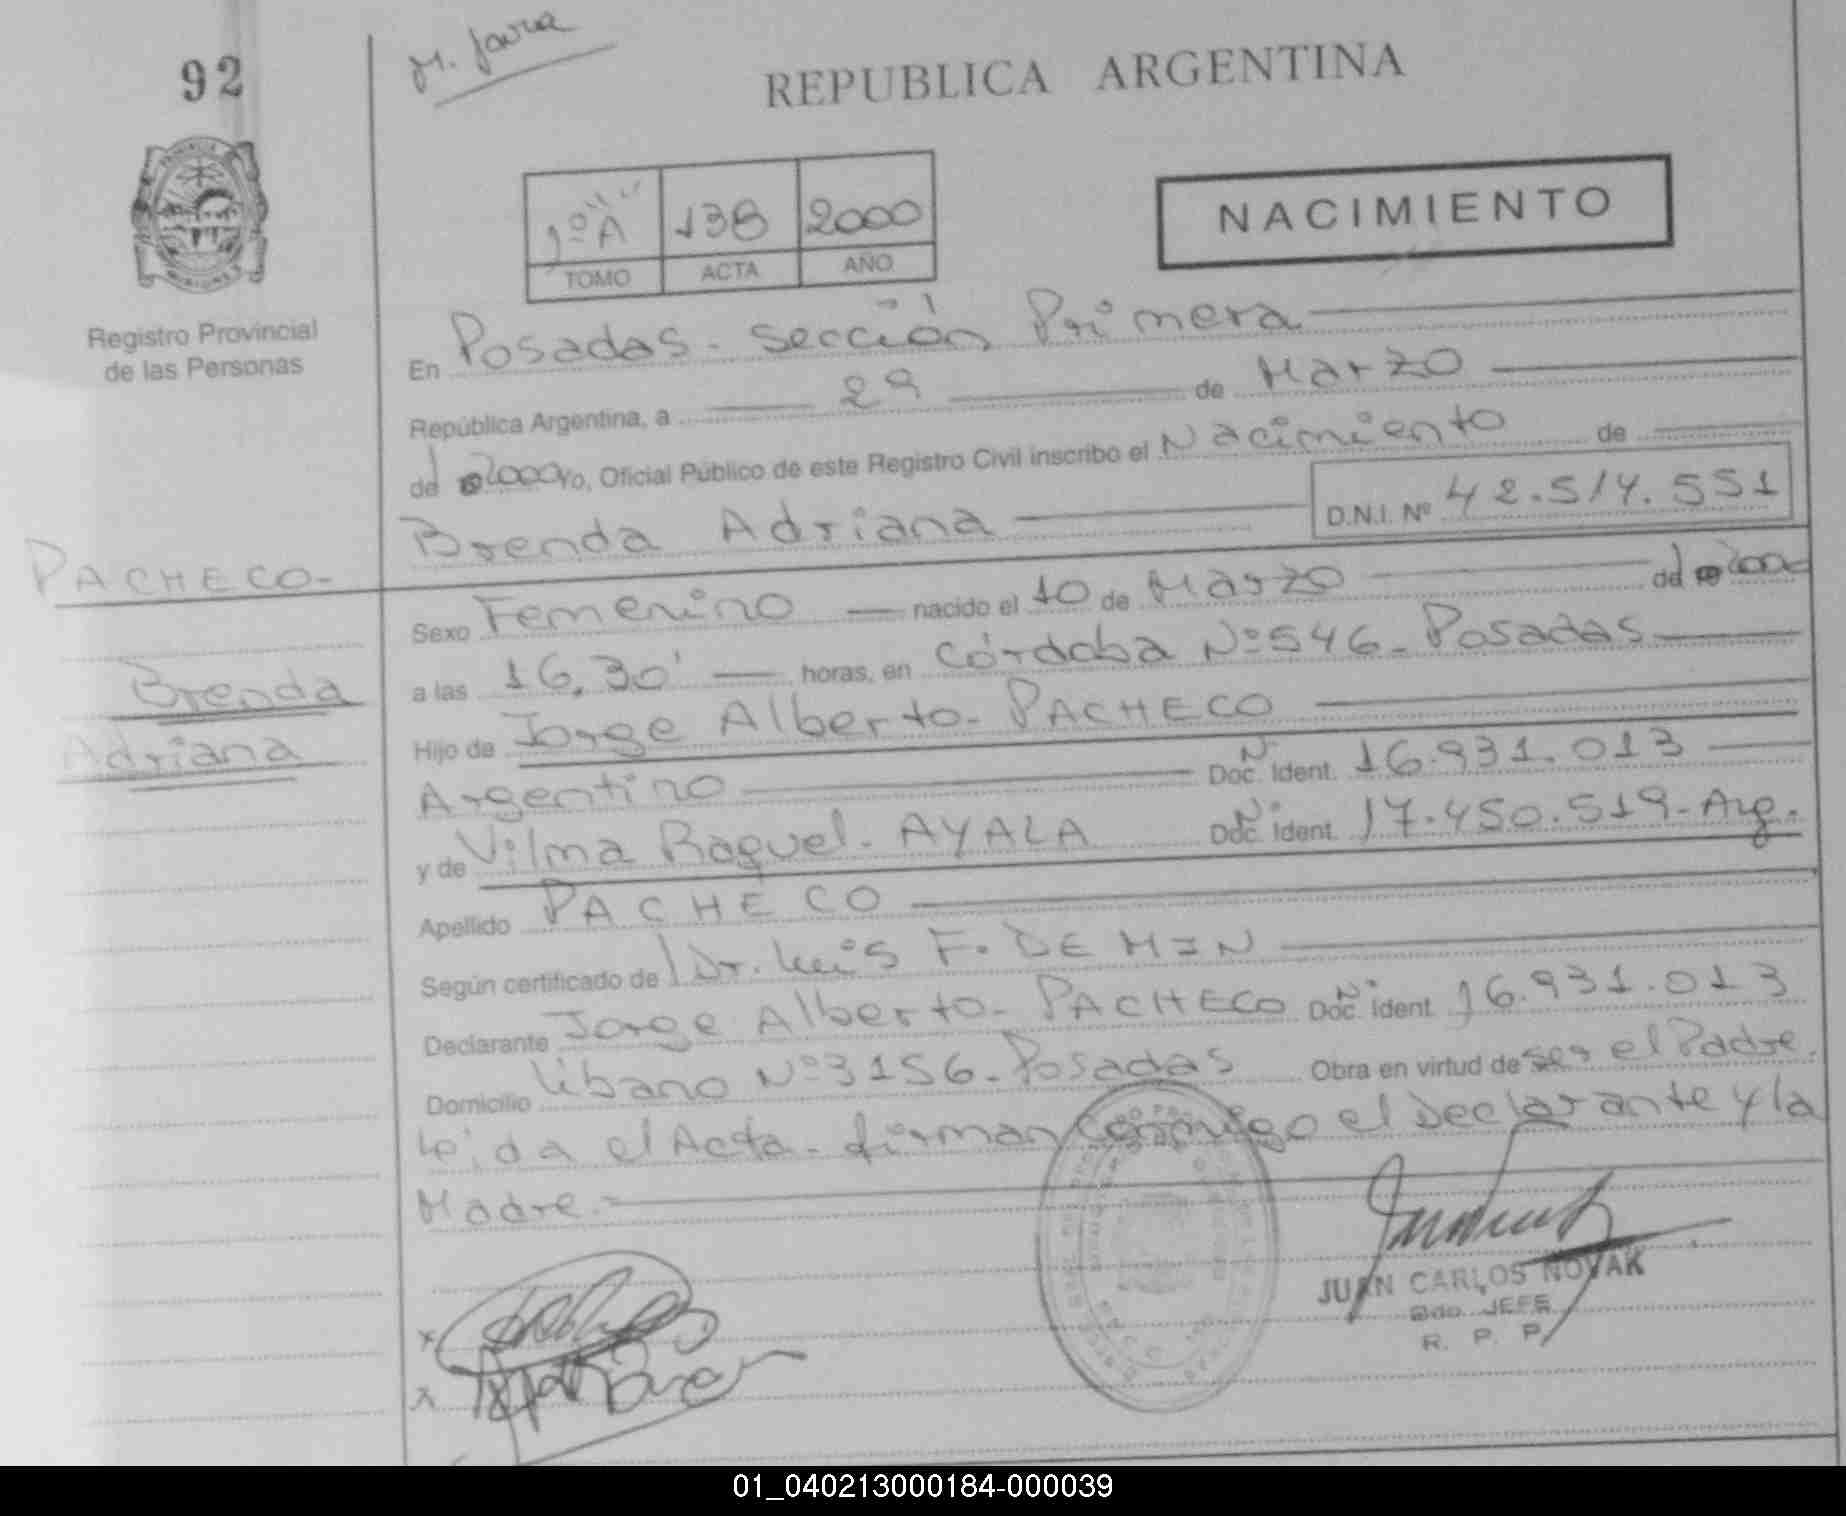 92
M.
REPUBLICA ARGENTINA
1º "A" 138 2000
TOMO ACTA AÑO
NACIMIENTO
Registro Provincial
de las Personas
En Posadas - Sección Primera
República Argentina, a 29 de Marzo
del 2000 Yo, Oficial Público de este Registro Civil inscribo el Nacimiento de
Brenda Adriana D.N.I. Nº 42.514.551
PACHECO-
Brenda
Adriana
Sexo Femenino nacido el 10 de Marzo del 2000
a las 16,30' horas, en Córdoba Nº 546 - Posadas
Hijo de Jorge Alberto - PACHECO
Argentino Doc. Ident. Nº 16.931.013
y de Vilma Raquel - AYALA Doc. Ident. Nº 17.450.519 - Arg.
Apellido PACHECO
Según certificado de Dr. Luis F. DE MIN
Declarante Jorge Alberto - PACHECO Doc. Ident. Nº 16.931.013
Domicilio Líbano Nº 3156 - Posadas Obra en virtud de ser el Padre.
Leida el Acta - firman conmigo el Declarante y la
Madre. =
JUAN CARLOS NOVAK
2do. JEFE
R. P. P.
x
x
01_040213000184-000039